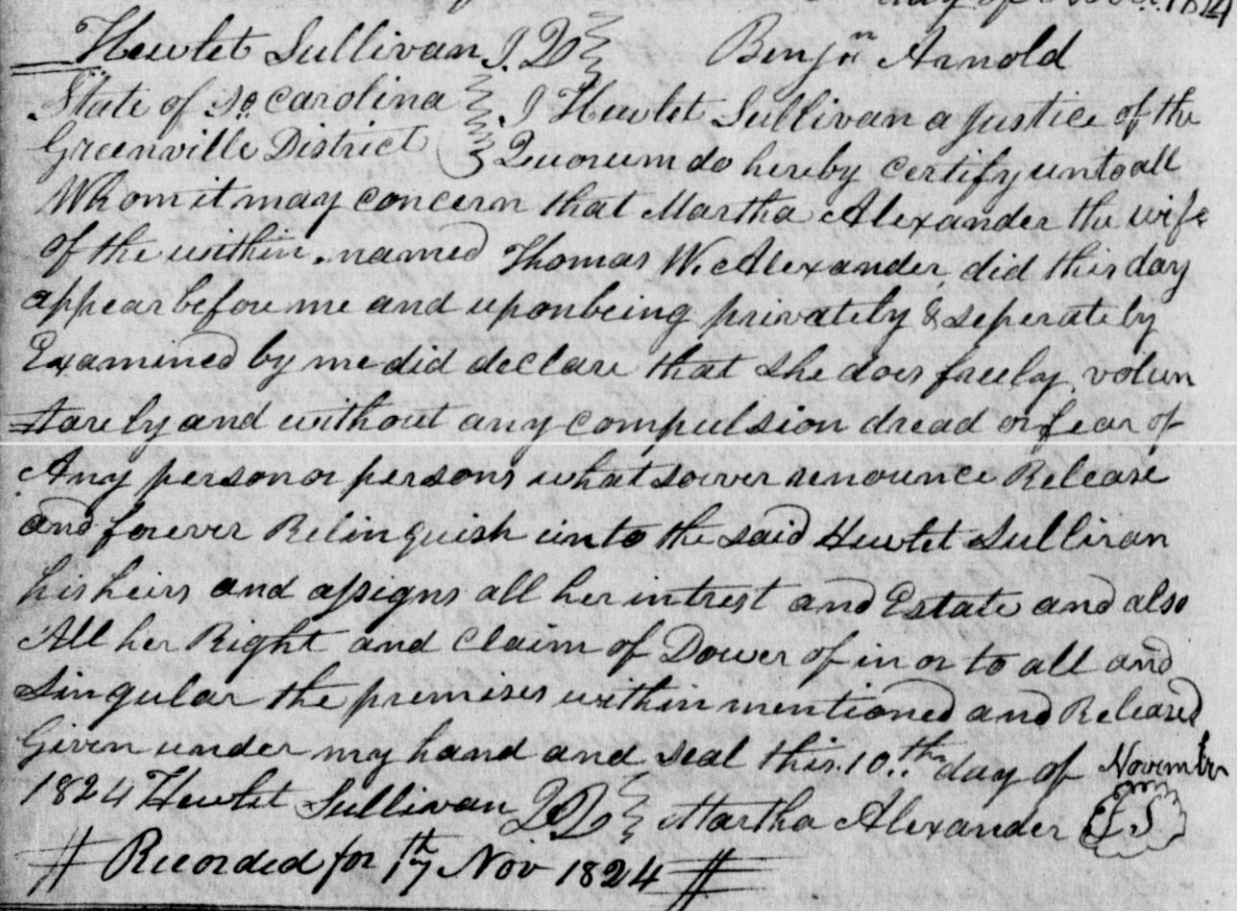 day of 1824
Hewlet Sullivan J. Q Benjn Arnold
State of So. Carolina I Hewlet Sullivan a Justice of the
Greenville District Quorum do hereby certify unto all
Whom it may concern that Martha Alexander the wife
of the within named Thomas W. Alexander did this day
appear before me and upon being privately & seperately
Examined by me did declare that she does freely volun
tarely and without any compulsion dread or fear of
Any person or persons whatsoever renounce Release
and forever Relinquish unto the said Hewlet Sullivan
his heirs and assigns all her intrest and Estate and also
All her Right and Claim of Dower of in or to all and
Singular the premises within mentioned and Released
Given under my hand and seal this 10th day of November
1824 Hewlet Sullivan Martha Alexander LS
Recorded for 17th Nov 1824